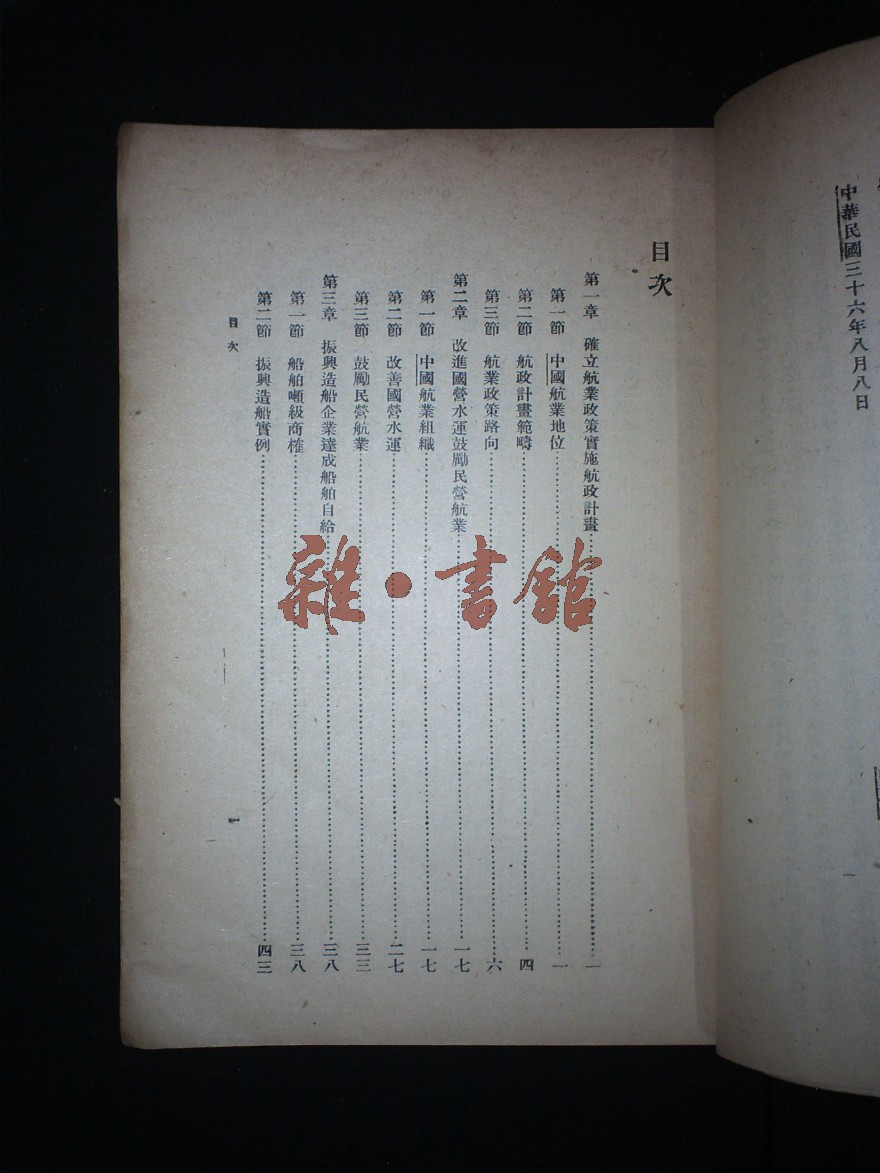 中華民國三十六年八月八日
一
目次
第一章 確立航業政策實施航政計畫……一
第一節 中國航業地位……一
第二節 航政計畫範疇……四
第三節 航業政策路向……六
第二章 改進國營水運鼓勵民營航業……一七
第一節 中國航業組織……一七
第二節 改善國營水運……二七
第三節 鼓勵民營航業……三三
第三章 振興造船企業達成船舶自給……三八
第一節 船舶噸級商榷……三八
第二節 振興造船實例……四三
目次 一
雜·書館